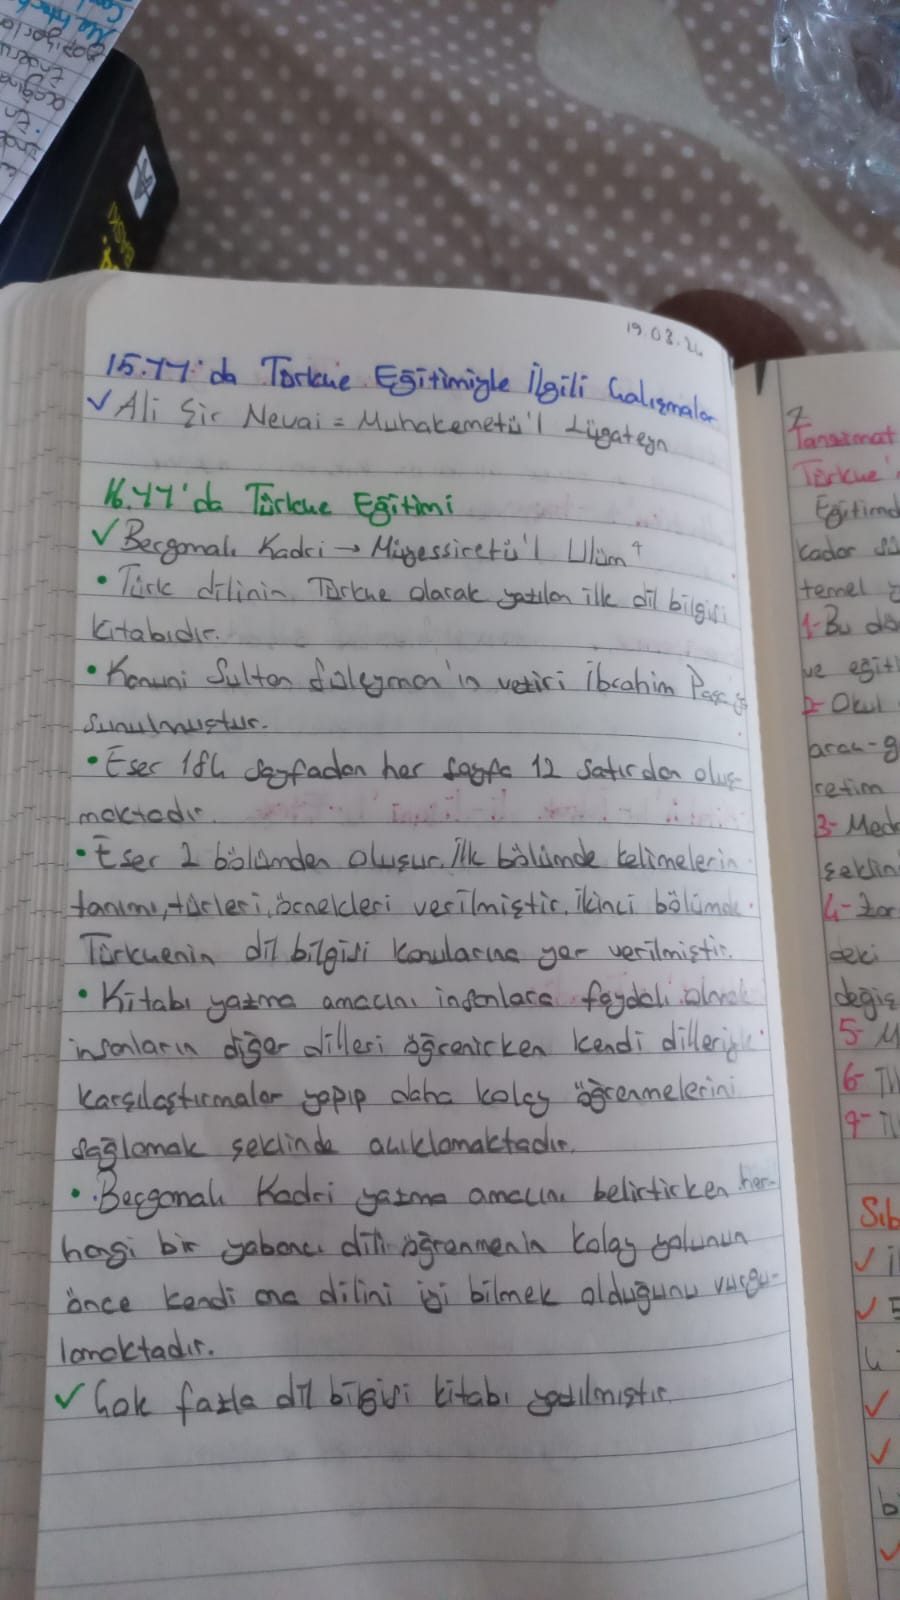 19.03.24
15.YY.'da Türkçe Eğitimiyle İlgili Çalışmalar
✓ Ali Şir Nevai = Muhakemetü'l Lügateyn
16.YY'da Türkçe Eğitimi
✓ Bergamalı Kadri → Müyessiretü'l Ulûm
• Türk dilinin Türkçe olarak yazılan ilk dil bilgisi
kitabıdır.
• Kanuni Sultan Süleyman'ın veziri İbrahim Paşa'ya
sunulmuştur.
• Eser 184 sayfadan her sayfa 12 satırdan oluş-
maktadır.
• Eser 2 bölümden oluşur. İlk bölümde kelimelerin
tanımı, türleri, örnekleri verilmiştir. İkinci bölümde
Türkçenin dil bilgisi konularına yer verilmiştir.
• Kitabı yazma amacını insanlara faydalı olmak
insanların diğer dilleri öğrenirken kendi dilleriyle
karşılaştırmalar yapıp daha kolay öğrenmelerini
sağlamak şeklinde açıklamaktadır.
• Bergamalı Kadri yazma amacını belirtirken her-
hangi bir yabancı dili öğrenmenin kolay yolunun
önce kendi ana dilini iyi bilmek olduğunu vurgu-
lamaktadır.
✓ Çok fazla dil bilgisi kitabı yazılmıştır.
Tanzimat
Türkçe'
Eğitimd
kadar
temel
1- Bu dö
ve eğiti
2- Okul
araç-g
retim
3- Medr
şeklin
4- Zor
deki
değiş
5- M
6-
7-
Sıb
✓
✓
✓
✓
b
✓
BASKI